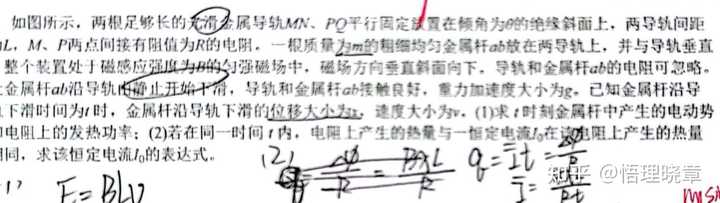 如图所示,两根足够长的光滑金属导轨MN、PQ平行固定放置在倾角为θ的绝缘斜面上,两导轨间距
L,M、P两点间接有阻值为R的电阻。一根质量为m的粗细均匀金属杆ab放在两导轨上,并与导轨垂直
整个装置处于磁感应强度为B的匀强磁场中,磁场方向垂直斜面向下,导轨和金属杆ab的电阻可忽略。
金属杆ab沿导轨由静止开始下滑,导轨和金属杆ab接触良好,重力加速度大小为g。已知金属杆沿导
下滑时间为t时,金属杆沿导轨下滑的位移大小为x,速度大小为v。(1)求t时刻金属杆中产生的电动势
电阻上的发热功率;(2)若在同一时间t内,电阻上产生的热量与一恒定电流I₀在该电阻上产生的热量
同,求该恒定电流I₀的表达式。
(2) = ΔΦ/R = BxL/R q = It = ΔΦ/R
E=BLv
I =
知乎 @悟理晓章